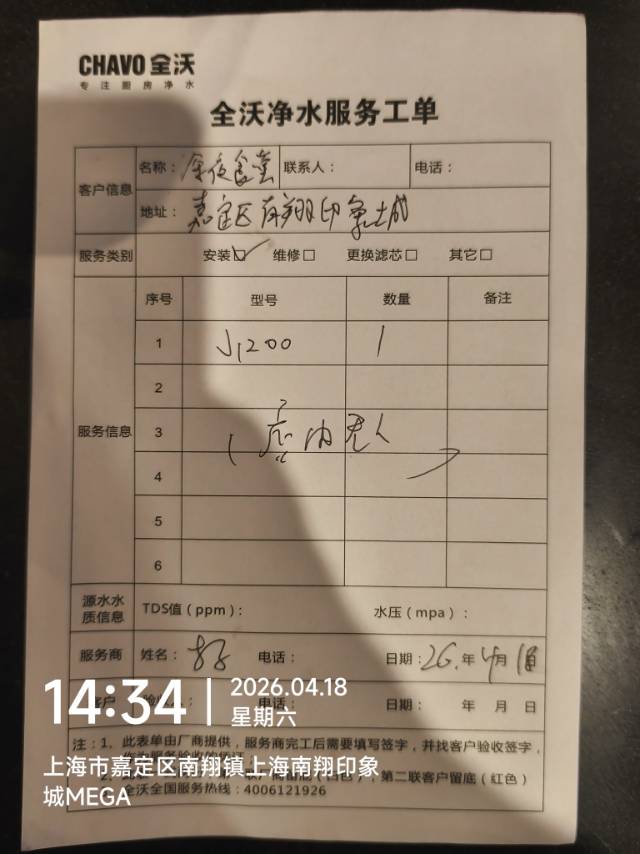 CHAVO 全沃
专注厨房净水
全沃净水服务工单
客户信息 名称： 食堂 联系人： 电话：
地址：嘉定区南翔印象城
服务类别 安装☑ 维修□ 更换滤芯□ 其它□
服务信息 序号 型号 数量 备注
1 J1200 1
2
3 （店内无人）
4
5
6
源水水质信息 TDS值（ppm）： 水压（mpa）：
服务商 姓名： 电话： 日期：26.年4月18日
客户 验收： 电话： 日期： 年 月 日
注：1、此表单由厂商提供，服务商完工后需要填写签字，并找客户验收签字，
第二联客户留底（红色）
全沃全国服务热线：4006121926
14:34 2026.04.18
星期六
上海市嘉定区南翔镇上海南翔印象
城MEGA